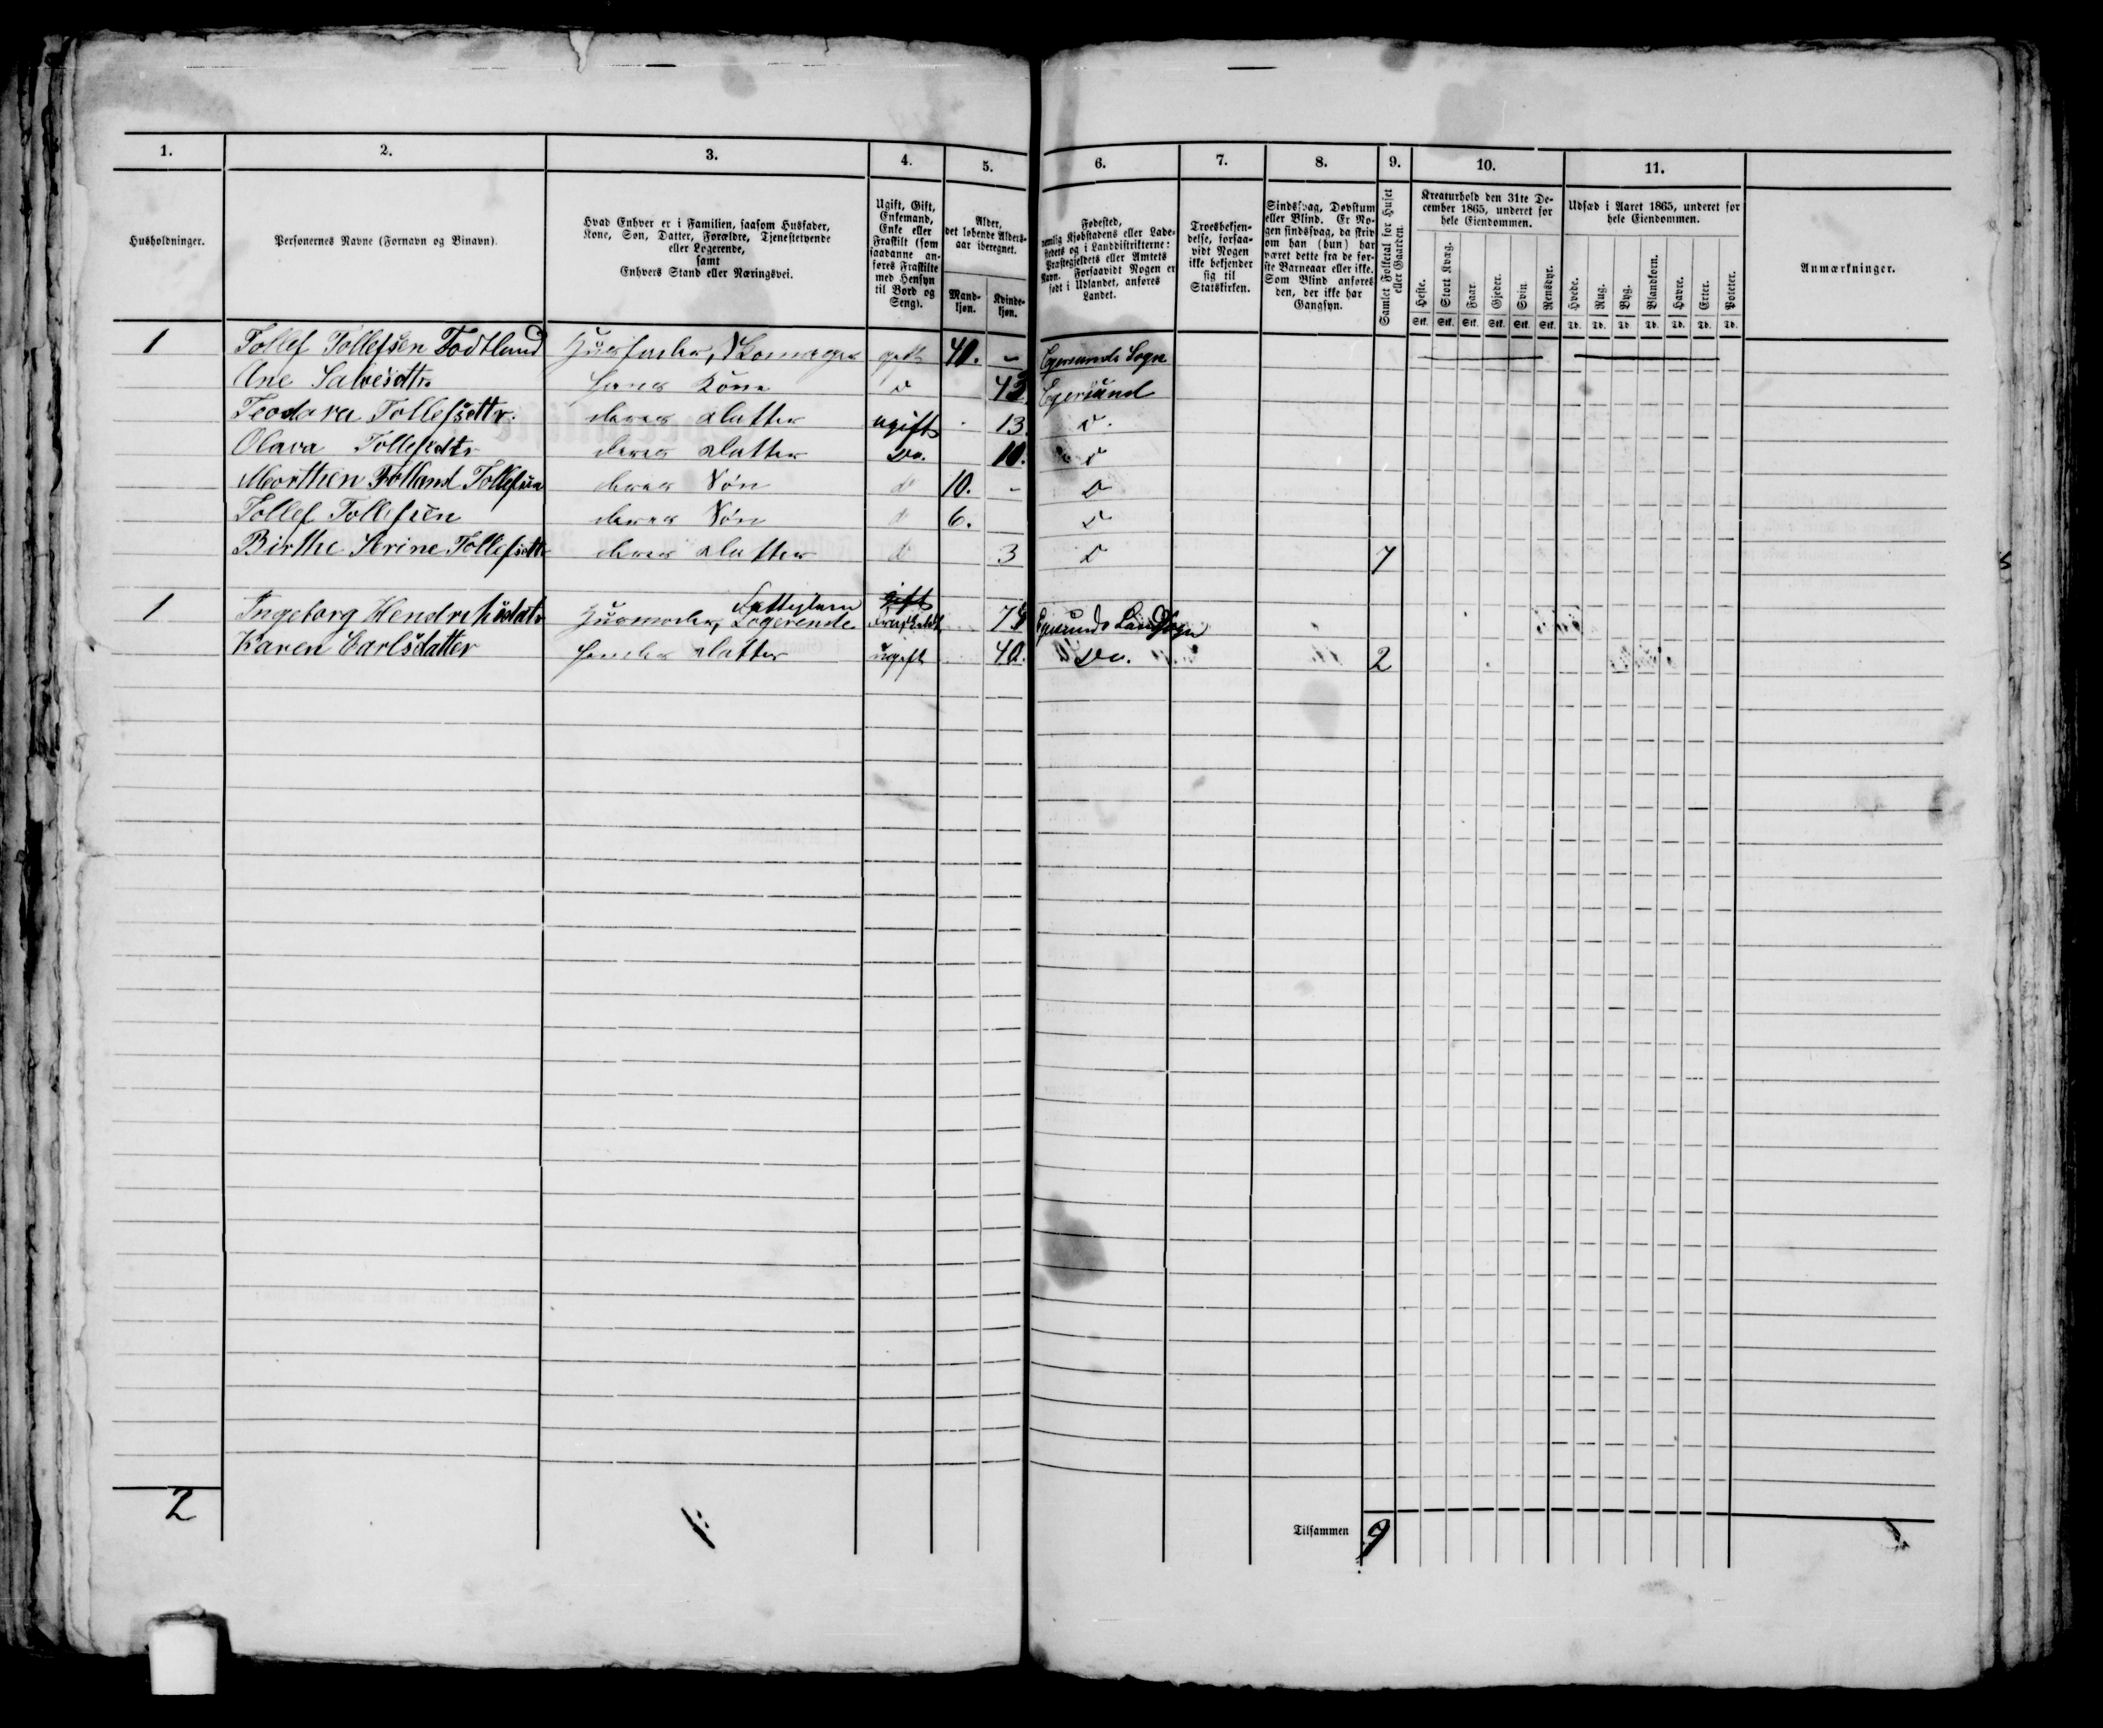 1. 2. 3. 4. 5. 6. 7. 8. 9. 10. 11.
Husholdninger.
Personernes Navne (Fornavn og Binavn).
Hvad Enhver er i Familien, saasom Husfader,
Kone, Søn, Datter, Forældre, Tjenestetyende
eller Logerende,
samt
Enhvers Stand eller Næringsvei.
Ugift, Gift,
Enkemand,
Enke eller
Fraskilt (som
saadanne an-
føres Fraskilte
med Hensyn
til Bord og
Seng).
Alder,
det løbende Alders-
aar iberegnet.
Mand-
kjøn.
Kvinde-
kjøn.
Fødested,
nemlig Kjøbstadens eller Lade-
stedets og i Landdistrikterne:
Præstegjeldets eller Amtets
Navn. Forsaavidt Nogen er
født i Udlandet, anføres
Landet.
Troesbekjen-
delse, forsaa-
vidt Nogen
ikke bekjender
sig til
Statskirken.
Sindssvag, Døvstum
eller Blind. Er No-
gen sindssvag, da skriv
om han (hun) har
været dette fra de før-
ste Barneaar eller ikke.
Som Blind anføres
den, der ikke har
Gangsyn.
Samlet Folketal for Huset
eller Gaarden.
Kreaturhold den 31te De-
cember 1865, underet for
hele Eiendommen.
Heste. Stort Kvæg. Faar. Gjeder. Svin. Rensdyr.
Stk. Stk. Stk. Stk. Stk. Stk.
Udsæd i Aaret 1865, underet for
hele Eiendommen.
Hvede. Rug. Byg. Blandkorn. Havre. Erter. Poteter.
Td. Td. Td. Td. Td. Td. Td.
Anmærkninger.
1 Tollef Tollefsen Fodtland Husfader, Skomager gift 40. - Egersunds Sogn
Ane Salvesdttr hans Kone d Egersund
Teodara Tollefsdttr. deres Datter ugift 13. D.
Olava Tollefsdttr deres Datter Do. 10. D
Morthen Tollefsen deres Søn d 10. - D
Tollef Tollefsen deres Søn d 6. D
Birthe Serine Tollefsdttr deres Datter d 3 D 7
Fattiglem gift
1 Ingeborg Hendrik Husmoder, Logerende fraskeldt Egersunds Landsogn
Karen Carlsdatter hendes Datter ugift 40. Do. 2
2
Tilsammen 9